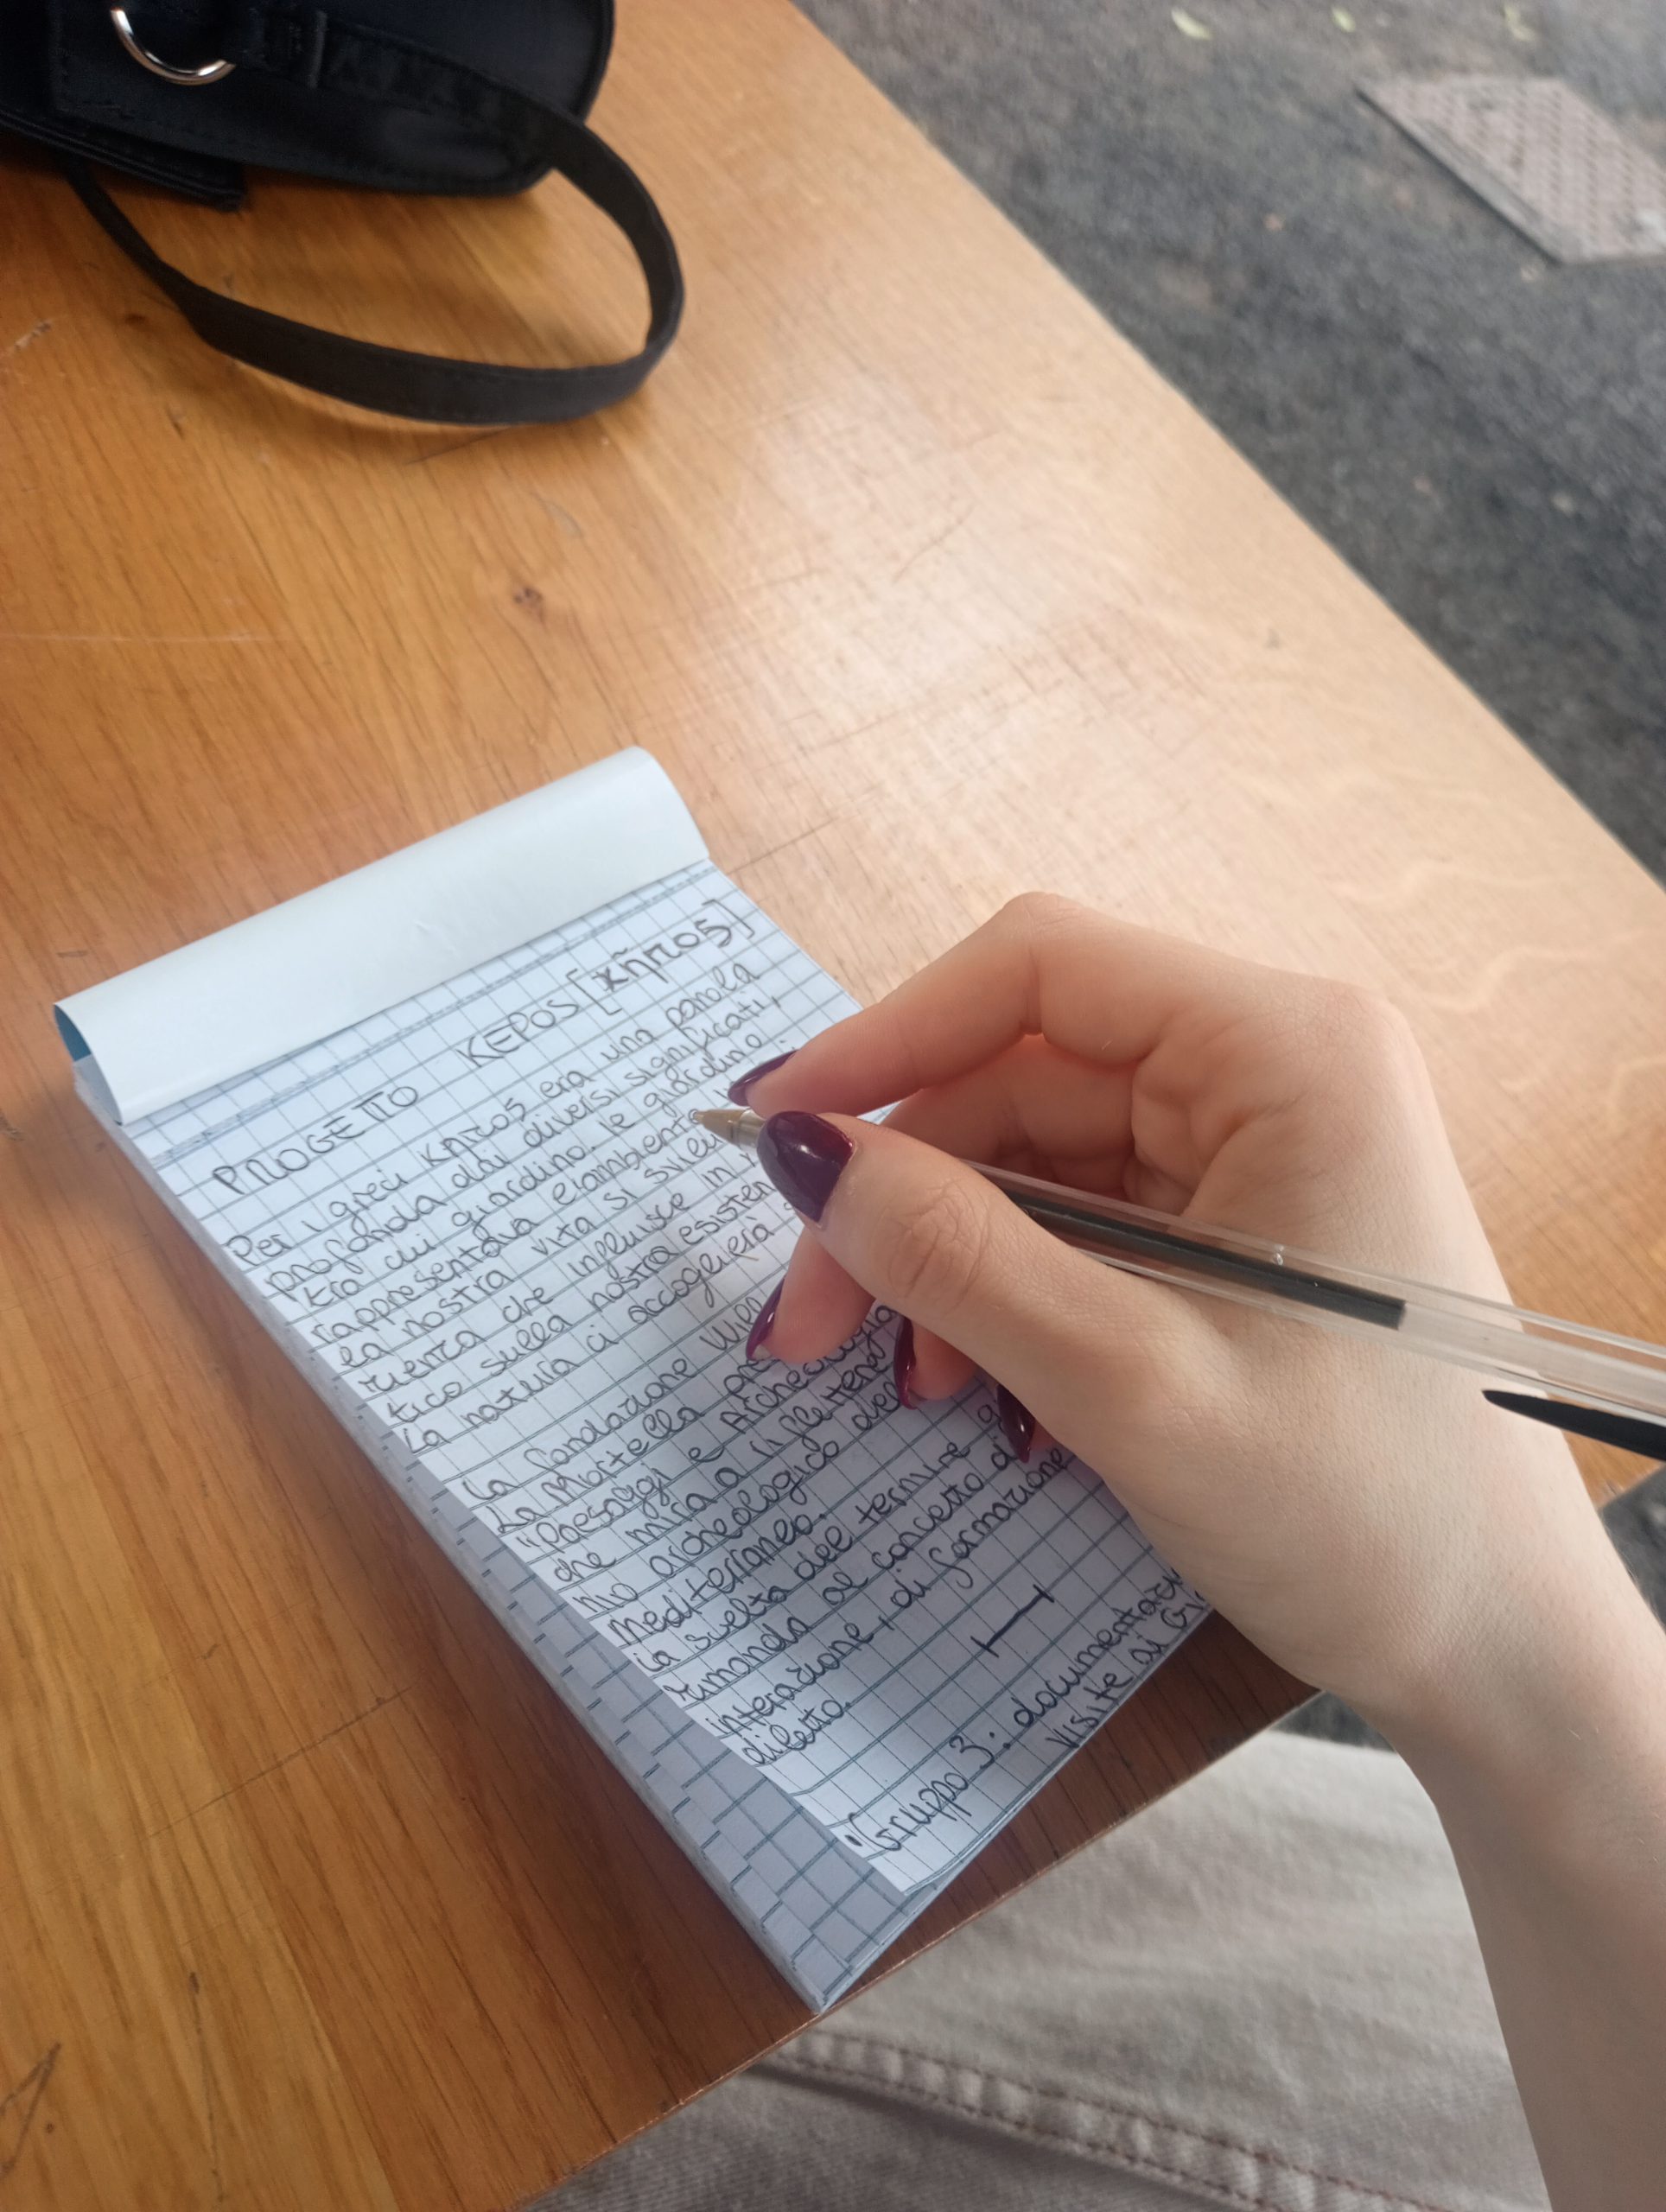 PROGETTO KEPOS [κῆπος]
Per i greci κηπος era una parola
profonda dai diversi significati,
tra cui giardino. Ie giardino
rappresentava e'ambiente
la nostra vita si svilu
menta che influisce in
tico sulla nostra esisten
La natura ci accoglierà
La fondazione Will
La Mortella
"Paesaggi e Archeologia
che mira a riflettere
nio archeologico del
mediterraneo.
La scelta del termine
rimanda al concetto di
interazione, di formazione
diletto.
"Gruppo 3: documentazi
visite ai Gi